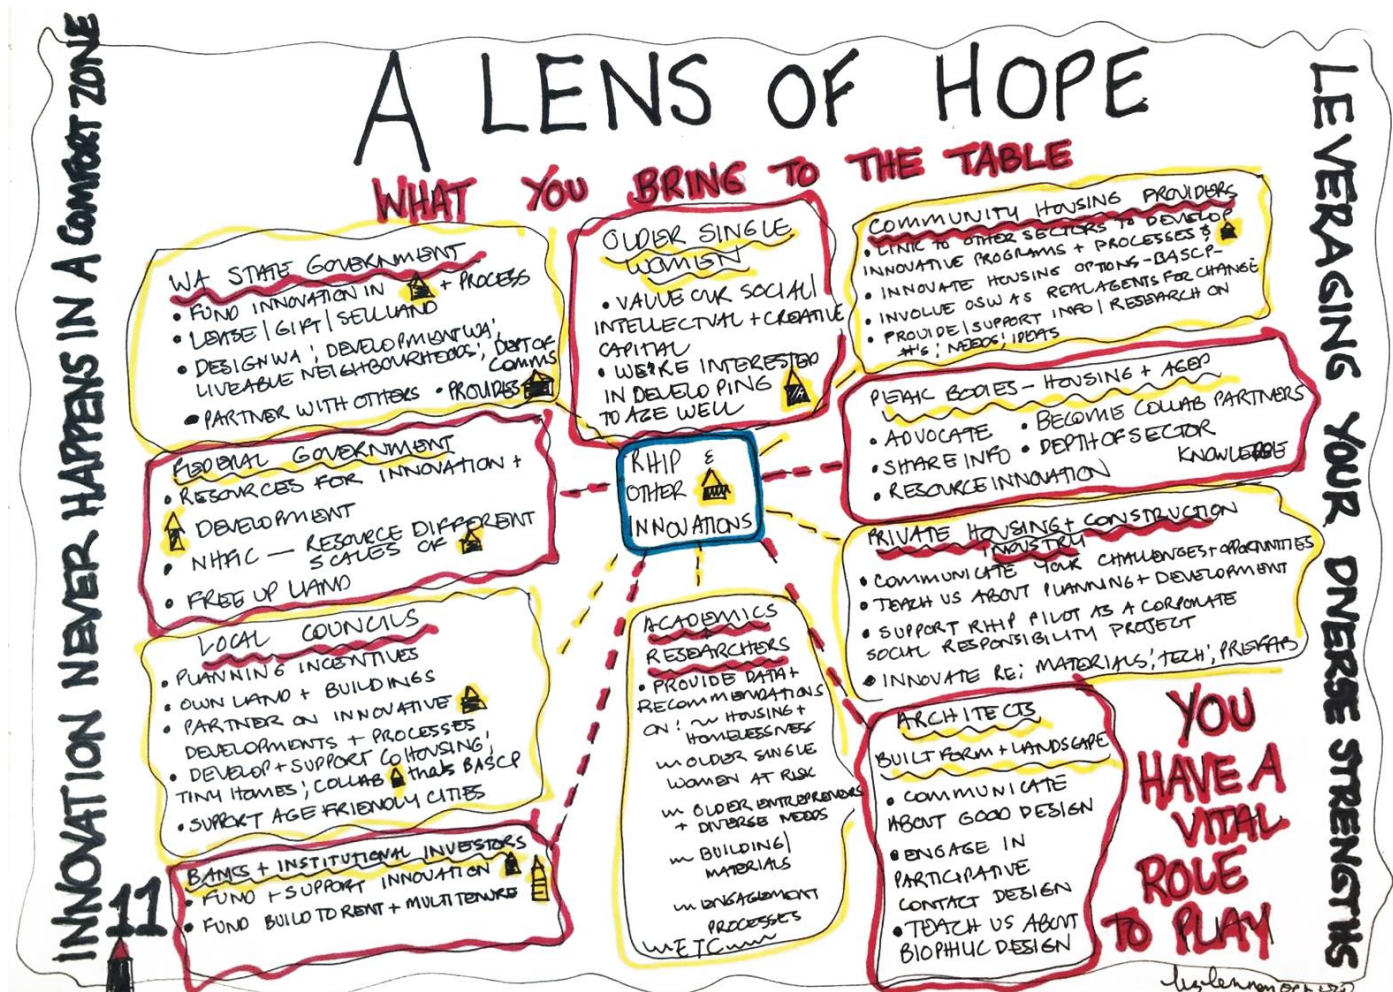 A LENS OF HOPE
WHAT YOU BRING TO THE TABLE
INNOVATION NEVER HAPPENS IN A COMFORT ZONE
WA STATE GOVERNMENT
• FUND INNOVATION IN + PROCESS
• LEASE | GIFT | SELL LAND
• DESIGNWA; DEVELOPMENTWA;
LIVEABLE NEIGHBOURHOODS; DEPT OF
COMMS
• PARTNER WITH OTHERS • PROVIDES
FEDERAL GOVERNMENT
• RESOURCES FOR INNOVATION +
DEVELOPMENT
• NHFIC — RESOURCE DIFFERENT
SCALES OF
• FREE UP LAND
LOCAL COUNCILS
• PLANNING INCENTIVES
• OWN LAND + BUILDINGS
• PARTNER ON INNOVATIVE
DEVELOPMENTS + PROCESSES
• DEVELOP + SUPPORT COHOUSING;
TINY HOMES; COLLAB thats BASCP
• SUPPORT AGE FRIENDLY CITIES
BANKS + INSTITUTIONAL INVESTORS
• FUND + SUPPORT INNOVATION
• FUND BUILD TO RENT + MULTITENURE
11
OLDER SINGLE
WOMEN
• VALUE OUR SOCIAL |
INTELLECTUAL + CREATIVE
CAPITAL
• WE'RE INTERESTED
IN DEVELOPING
TO AGE WELL
RHIP &
OTHER
INNOVATIONS
ACADEMICS
+
RESEARCHERS
• PROVIDE DATA +
RECOMMENDATIONS
ON: ~ HOUSING +
HOMELESSNESS
~ OLDER SINGLE
WOMEN AT RISK
~ OLDER ENTREPRENEURS
+ DIVERSE NEEDS
~ BUILDING |
MATERIALS
~ ENGAGEMENT
PROCESSES
~ ETC ~
COMMUNITY HOUSING PROVIDERS
• LINK TO OTHER SECTORS TO DEVELOP
INNOVATIVE PROGRAMS + PROCESSES &
• INNOVATE HOUSING OPTIONS – BASCP –
• INVOLVE OSW AS REAL AGENTS FOR CHANGE
• PROVIDE | SUPPORT INFO | RESEARCH ON
#'s; NEEDS; IDEAS
PEAK BODIES – HOUSING + AGED
• ADVOCATE • BECOME COLLAB PARTNERS
• SHARE INFO • DEPTH OF SECTOR
KNOWLEDGE
• RESOURCE INNOVATION
PRIVATE HOUSING + CONSTRUCTION
INDUSTRY
• COMMUNICATE YOUR CHALLENGES + OPPORTUNITIES
• TEACH US ABOUT PLANNING + DEVELOPMENT
• SUPPORT RHIP PILOT AS A CORPORATE
SOCIAL RESPONSIBILITY PROJECT
• INNOVATE RE: MATERIALS; TECH; PREFAB
ARCHITECTS
BUILT FORM + LANDSCAPE
• COMMUNICATE
ABOUT GOOD DESIGN
• ENGAGE IN
PARTICIPATIVE
CONTACT DESIGN
• TEACH US ABOUT
BIOPHILIC DESIGN
YOU
HAVE A
VITAL
ROLE
TO PLAY
LEVERAGING YOUR DIVERSE STRENGTHS